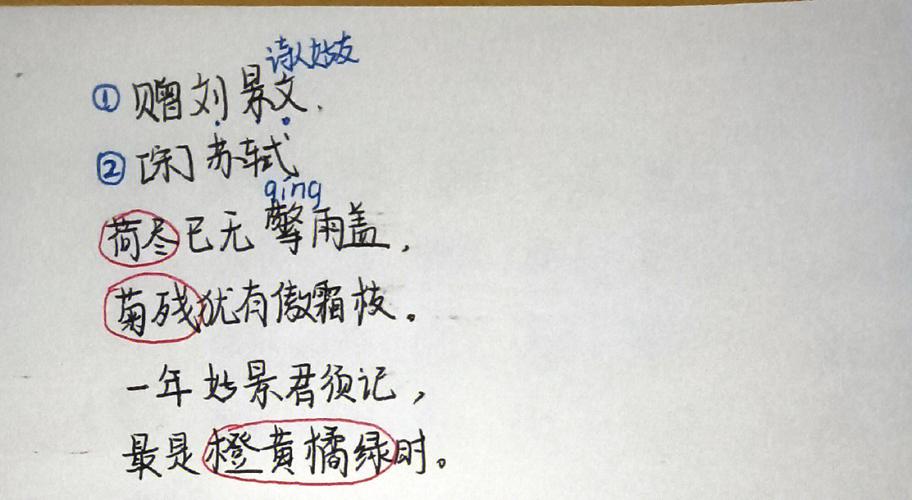 诗人好友
① 赠刘景文.
② [宋] 苏轼
qíng
荷尽已无擎雨盖,
菊残犹有傲霜枝。
一年好景君须记,
最是橙黄橘绿时。